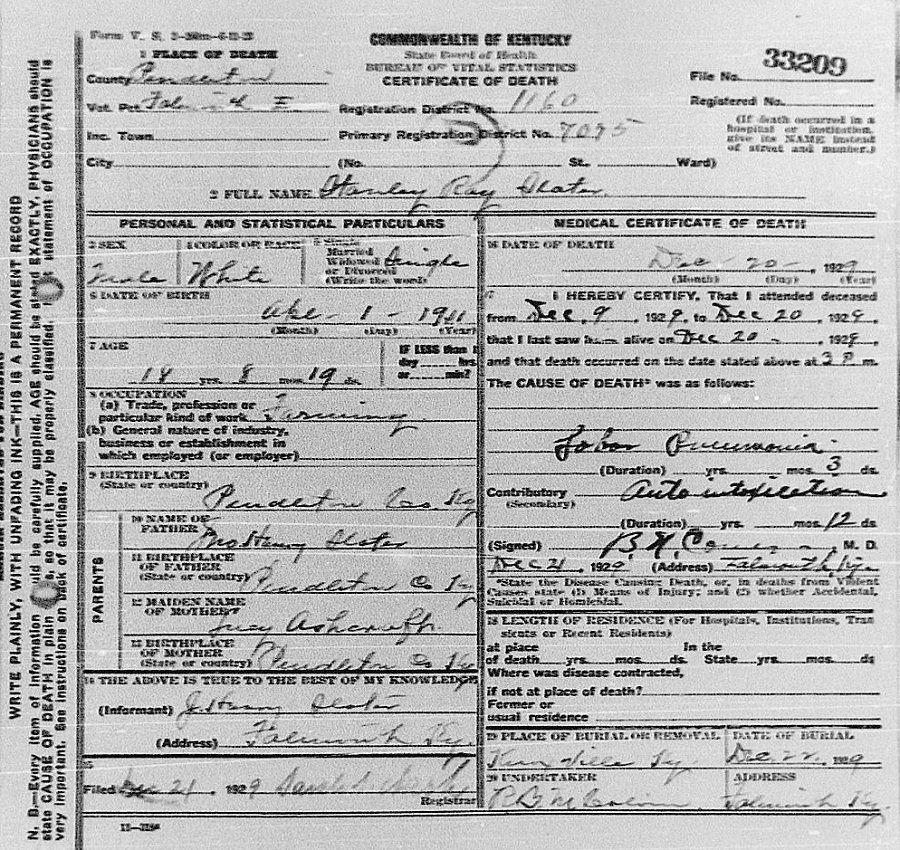 Form V. S.
COMMONWEALTH OF KENTUCKY
State Board of Health
BUREAU OF VITAL STATISTICS
CERTIFICATE OF DEATH
1 PLACE OF DEATH
County Pendleton
Vot. Pct. Falmouth
Inc. Town
City (No. St., Ward)
Registration District No. 1160
Primary Registration District No. 7075
File No. 33209
Registered No.
(If death occurred in a
hospital or institution,
give its NAME instead
of street and number.)
2 FULL NAME Stanley Ray Slater
PERSONAL AND STATISTICAL PARTICULARS
3 SEX Male
4 COLOR OR RACE White
5 Single
Married
Widowed
or Divorced
(Write the word) Single
6 DATE OF BIRTH
1 - 1911
(Month) (Day) (Year)
7 AGE
18 yrs. 8 mos. 19 ds.
IF LESS than 1
day hrs.
or min?
8 OCCUPATION
(a) Trade, profession or
particular kind of work Farming
(b) General nature of industry,
business or establishment in
which employed (or employer)
9 BIRTHPLACE
(State or country) Pendleton Co. Ky
PARENTS
10 NAME OF
FATHER Henry Slater
11 BIRTHPLACE
OF FATHER
(State or country) Pendleton Co Ky
12 MAIDEN NAME
OF MOTHER Lucy Ashcraft
13 BIRTHPLACE
OF MOTHER
(State or country) Pendleton Co Ky
14 THE ABOVE IS TRUE TO THE BEST OF MY KNOWLEDGE
(Informant) J. Henry Slater
(Address) Falmouth Ky.
15
Filed Dec 21, 1929
Registrar
MEDICAL CERTIFICATE OF DEATH
16 DATE OF DEATH
Dec - 20, 1929
(Month) (Day) (Year)
17 I HEREBY CERTIFY, That I attended deceased
from Dec. 9 1929, to Dec 20, 1929,
that I last saw him alive on Dec 20 -, 1929,
and that death occurred on the date stated above at 3 P. m.
The CAUSE OF DEATH* was as follows:
Lobar Pneumonia
(Duration) yrs. mos. 3 ds.
Contributory Auto intoxication
(Secondary)
(Duration) yrs. mos. 12 ds
(Signed) B. N. M. D.
Dec 21, 1929 (Address) Falmouth Ky.
*State the Disease Causing Death, or, in deaths from Violent
Causes state (1) Means of Injury; and (2) whether Accidental,
Suicidal or Homicidal.
18 LENGTH OF RESIDENCE (For Hospitals, Institutions, Tran
sients or Recent Residents)
at place In the
of death yrs. mos. ds. State yrs. mos. ds
Where was disease contracted,
if not at place of death?
Former or
usual residence
19 PLACE OF BURIAL OR REMOVAL
Ky.
DATE OF BURIAL
Dec. 22, 1929
20 UNDERTAKER
ADDRESS
Falmouth Ky.
N. B.—Every item of information should be carefully supplied. AGE should be stated EXACTLY, PHYSICIANS should
state CAUSE OF DEATH in plain terms, so that it may be properly classified. statement of OCCUPATION is
very important. See instructions on back of certificate.
WRITE PLAINLY, WITH UNFADING INK—THIS IS A PERMANENT RECORD